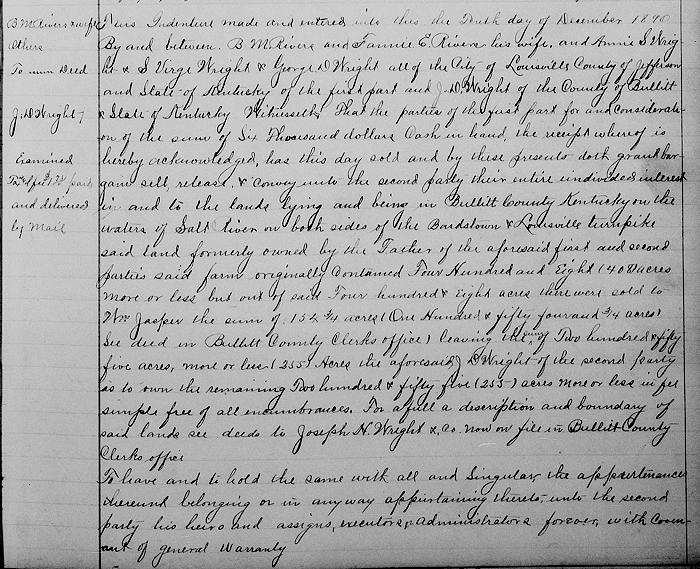 B M Rivers & wife
Others
To mum Deed
J. D Wright
Examined
and delivered
by Mail
This Indenture made and entered into this the Tenth day of December 1890
By and between. B M Rivers and Fannie E. Rivers his wife, and Annie S Wrig-
ht & S Virge Wright & George D Wright all of the City of Louisville County of Jefferson
and State of Kentucky of the first part and J. D Wright of the County of Bullitt
& State of Kentucky Witnesseth, That the parties of the first part for and considerati-
on of the sum of Six Thousand dollars Cash in hand, the receipt whereof is
hereby acknowledged, has this day sold and by these presents doth grant bar-
gain sell, release, & convey unto the second party their entire undivided interest
in and to the lands lying and being in Bullitt County Kentucky on the
waters of Salt river on both sides of the Bardstown & Louisville turnpike
said Land formerly owned by the Father of the aforesaid first and second
parties said farm originally Contained Four Hundred and Eight (408) acres
more or less but out of said Four hundred & Eight acres there were sold to
Wm Jasper the sum of 154 3/4 acres (One Hundred & fifty four and 3/4 acres)
See deed in Bullitt County Clerks office) leaving the sum of Two hundred & fifty
five acres, more or less (255) Acres the aforesaid J D Wright of the second party
is to own the remaining Two hundred & fifty five (255) acres more or less in fee
simple free of all encumbrances. For a full a description and boundary of
said lands see deeds to Joseph H. Wright & Co. now on file in Bullitt County
Clerks office
To have and to hold the same with all and Singular, the appurtenances
thereunto belonging or in anyway appertaining thereto, unto the second
party his heirs and assigns, executors, & administrators forever, with Coven-
ant of general Warranty